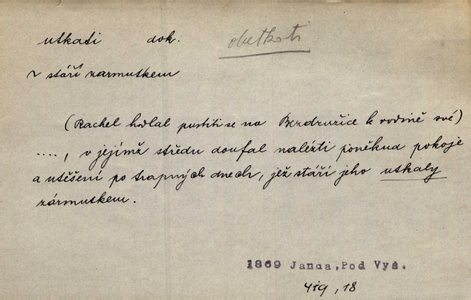 utkati dok. obetkati
~ stáří zármutkem
(Rachel hodlal pustiti se na Bezdružice k rodině své)
...., v jejímž středu doufal nalézti poněkud pokoje
a utěšení po trapných dnech, jež stáří jeho utkaly
zármutkem.
1869 Janda, Pod Vyš.
419, 18